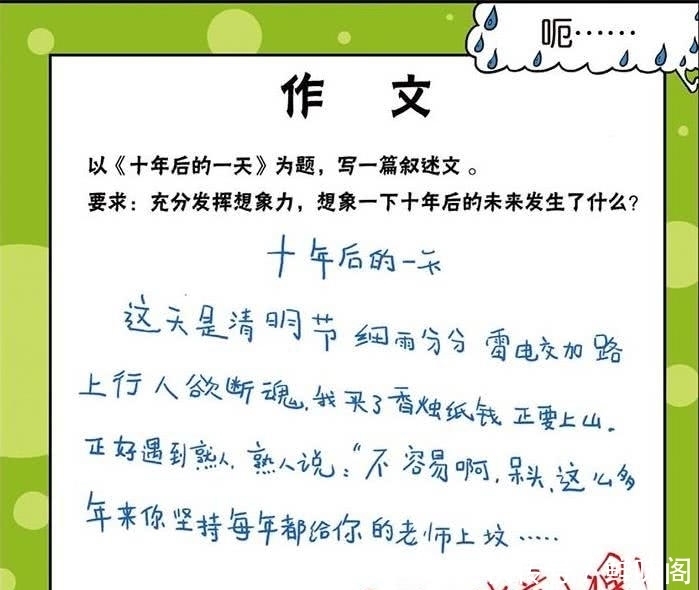 呃……
作 文
以《十年后的一天》为题，写一篇叙述文。
要求：充分发挥想象力，想象一下十年后的未来发生了什么？
十年后的一天
这天是清明节 细雨分分 雷电交加 路
上行人欲断魂，我买了香烛纸钱 正要上山.
正好遇到熟人，熟人说："不容易啊，呆头，这么多
年来你坚持每年都给你的老师上坟……
阁